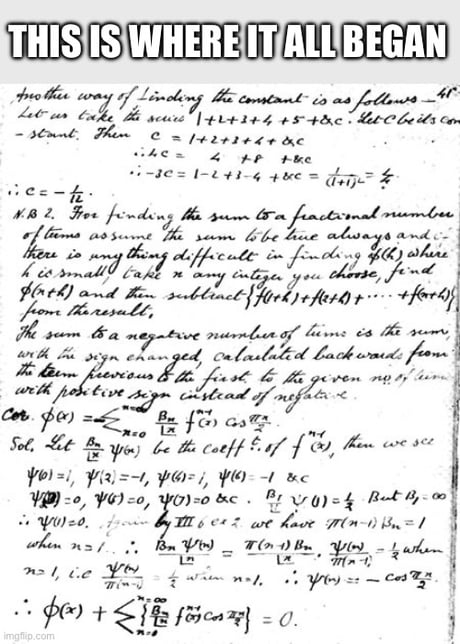 THIS IS WHERE IT ALL BEGAN
Another way of finding the constant is as follows — 41
Let us take the series 1+2+3+4+5+&c. Let C be its con
-stant. Then c = 1+2+3+4+&c
∴4c = 4 +8 +&c
∴-3c = 1-2+3-4+&c = 1/(1+1)² = 1/4
∴ c = -1/12.
N.B 2. For finding the sum to a fractional number
of terms assume the sum to be true always and if
there is any thing difficult in finding φ(h) where
h is small, take n any integer you choose, find
φ(n+h) and then subtract {f(1+h)+f(2+h)+ ..... +f(n+h)}
from the result.
The sum to a negative number of terms is the sum,
with the sign changed, calculated backwards from
the term previous to the first to the given no. of terms
with positive sign instead of negative.
Cor. φ(x) = -∑ n=∞ n=0 Bn/⌊n fⁿ⁻¹(x) Cos πn/2.
Sol. Let Bn/⌊n ψ(n) be the coefft. of fⁿ⁻¹(x), then we see
ψ(0)=1, ψ(2)=-1, ψ(4)=1, ψ(6)=-1 &c
ψ(3)=0, ψ(5)=0, ψ(7)=0 &c. B₁/⌊1 ψ(1)=1/2. But B₁=∞
∴ ψ(1)=0. Again by III 6 ex 2. we have π(n-1)Bn=1
when n=1. ∴ Bn ψ(n)/⌊n = π(n-1)Bn/⌊n . ψ(n)/π(n-1) = 1/2 when
n=1, i.e ψ(n)/π(n-1) = 1/2 when n=1. ∴ ψ(n) = - Cos πn/2.
∴ φ(x) + ∑ n=∞ n=0 {Bn/⌊n fⁿ⁻¹(x) Cos πn/2} = 0.
imgflip.com